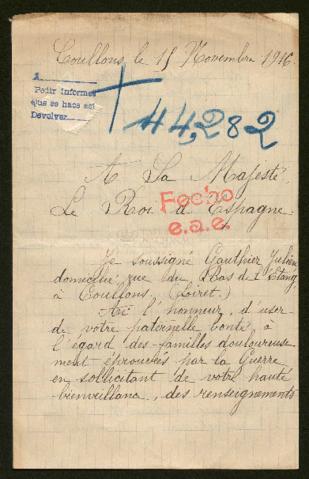 Coullons, le 15 Novembre 1916.
A
Pedir informes
que se hace así
Devolver
44,282
A Sa Majesté
Le Roi d'Espagne
Fecho
e.a.e.
Je soussigné Gauthier Julien
domicilié rue du Bas de l'Etang,
à Coullons, (Loiret.)
Ai l'honneur, d'user
de votre paternelle bonté à
l'égard des familles douloureuse-
ment éprouvées par la Guerre
en sollicitant de votre haute
bienveillance, des renseignements